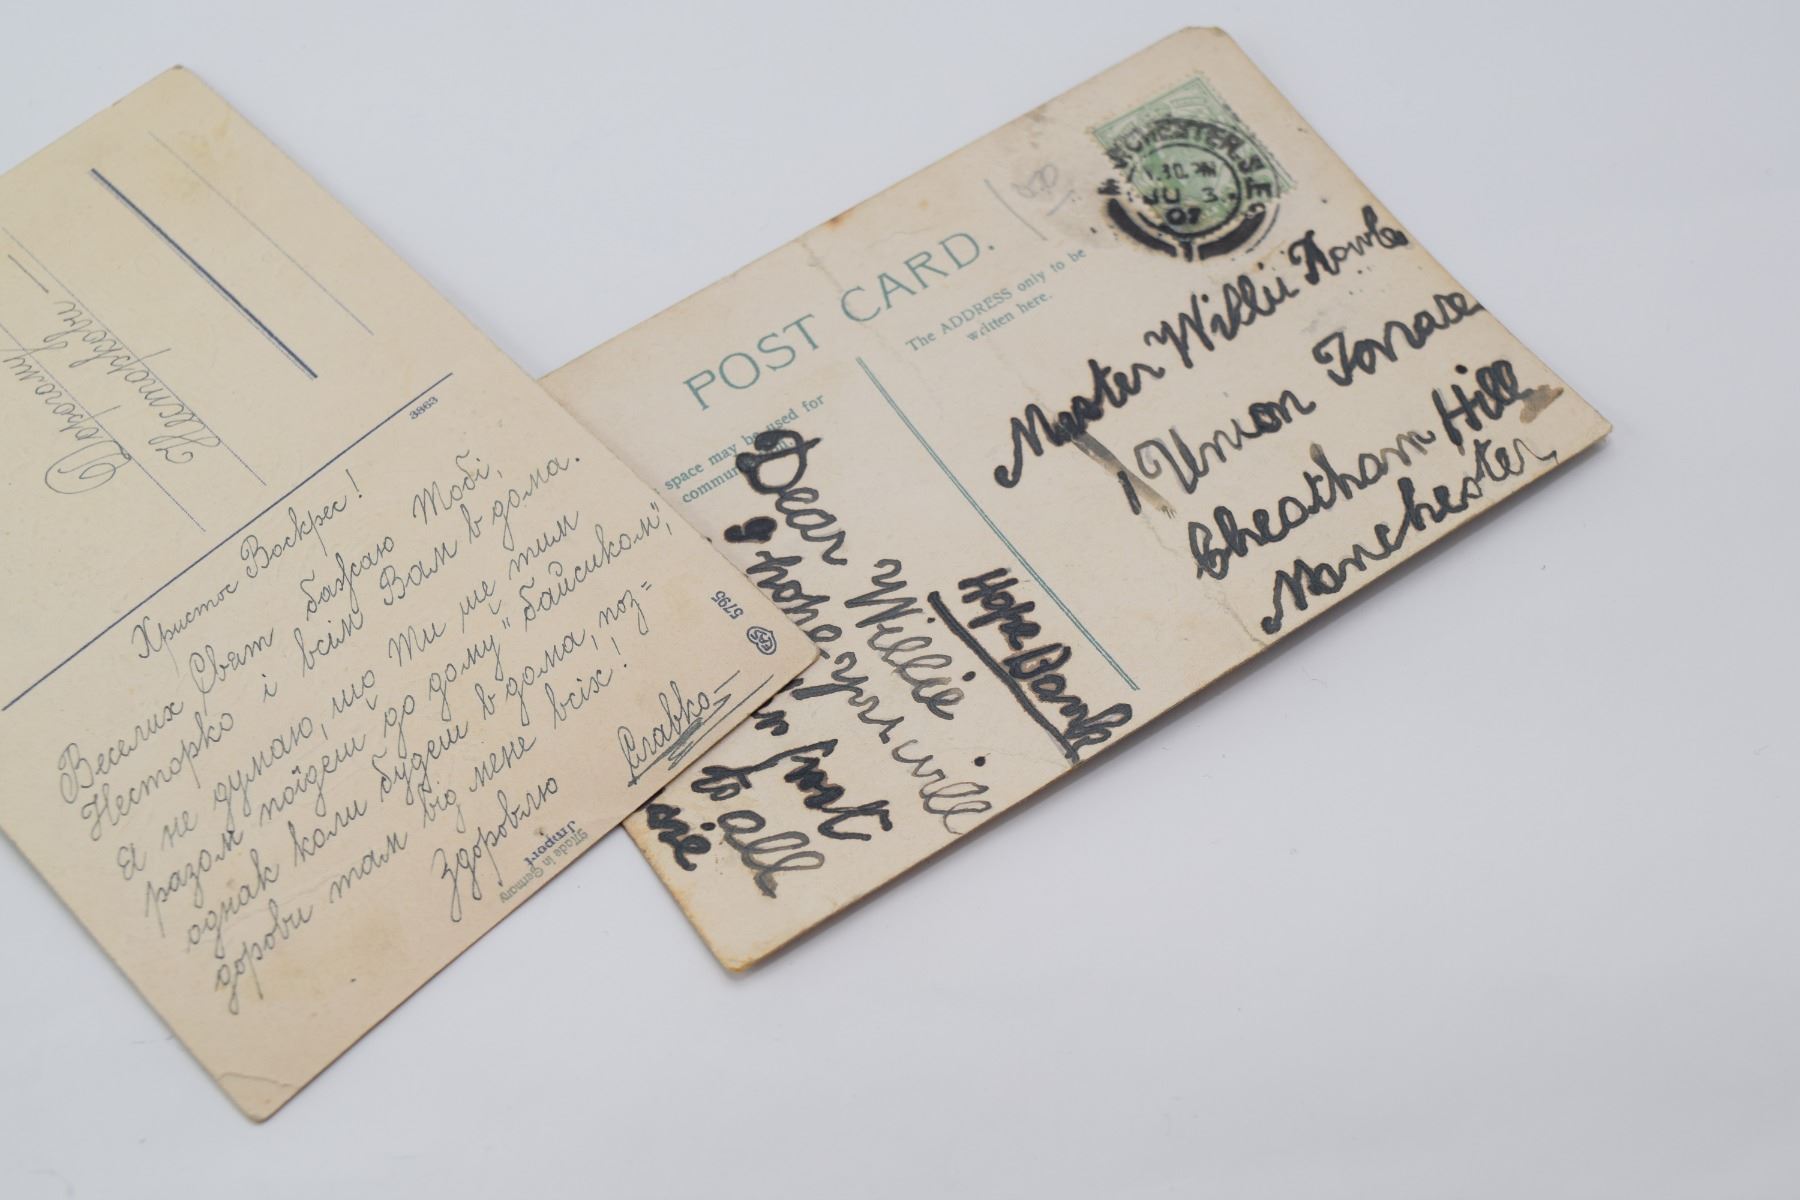 Дорогому
Несторкові
3863
Христос Воскрес!
Веселих Свят бажаю Тобі,
Несторко і всім Вам в дома.
Я не думаю, що Ти ще тим
разом поїдеш до дому „байсиком",
однак коли будеш в дома, поз=
дорови там від мене всіх!
Здоровлю
Славко
5795
Import
Made in Germany
POST CARD.
space may be used for
The ADDRESS only to be
written here.
MANCHESTER. S.E.
.30 PM
JU 3
07
Master Willie
1 Union Terrace
Cheatham Hill
Manchester
Hope Bank
Dear Willie
I hope you will
to all